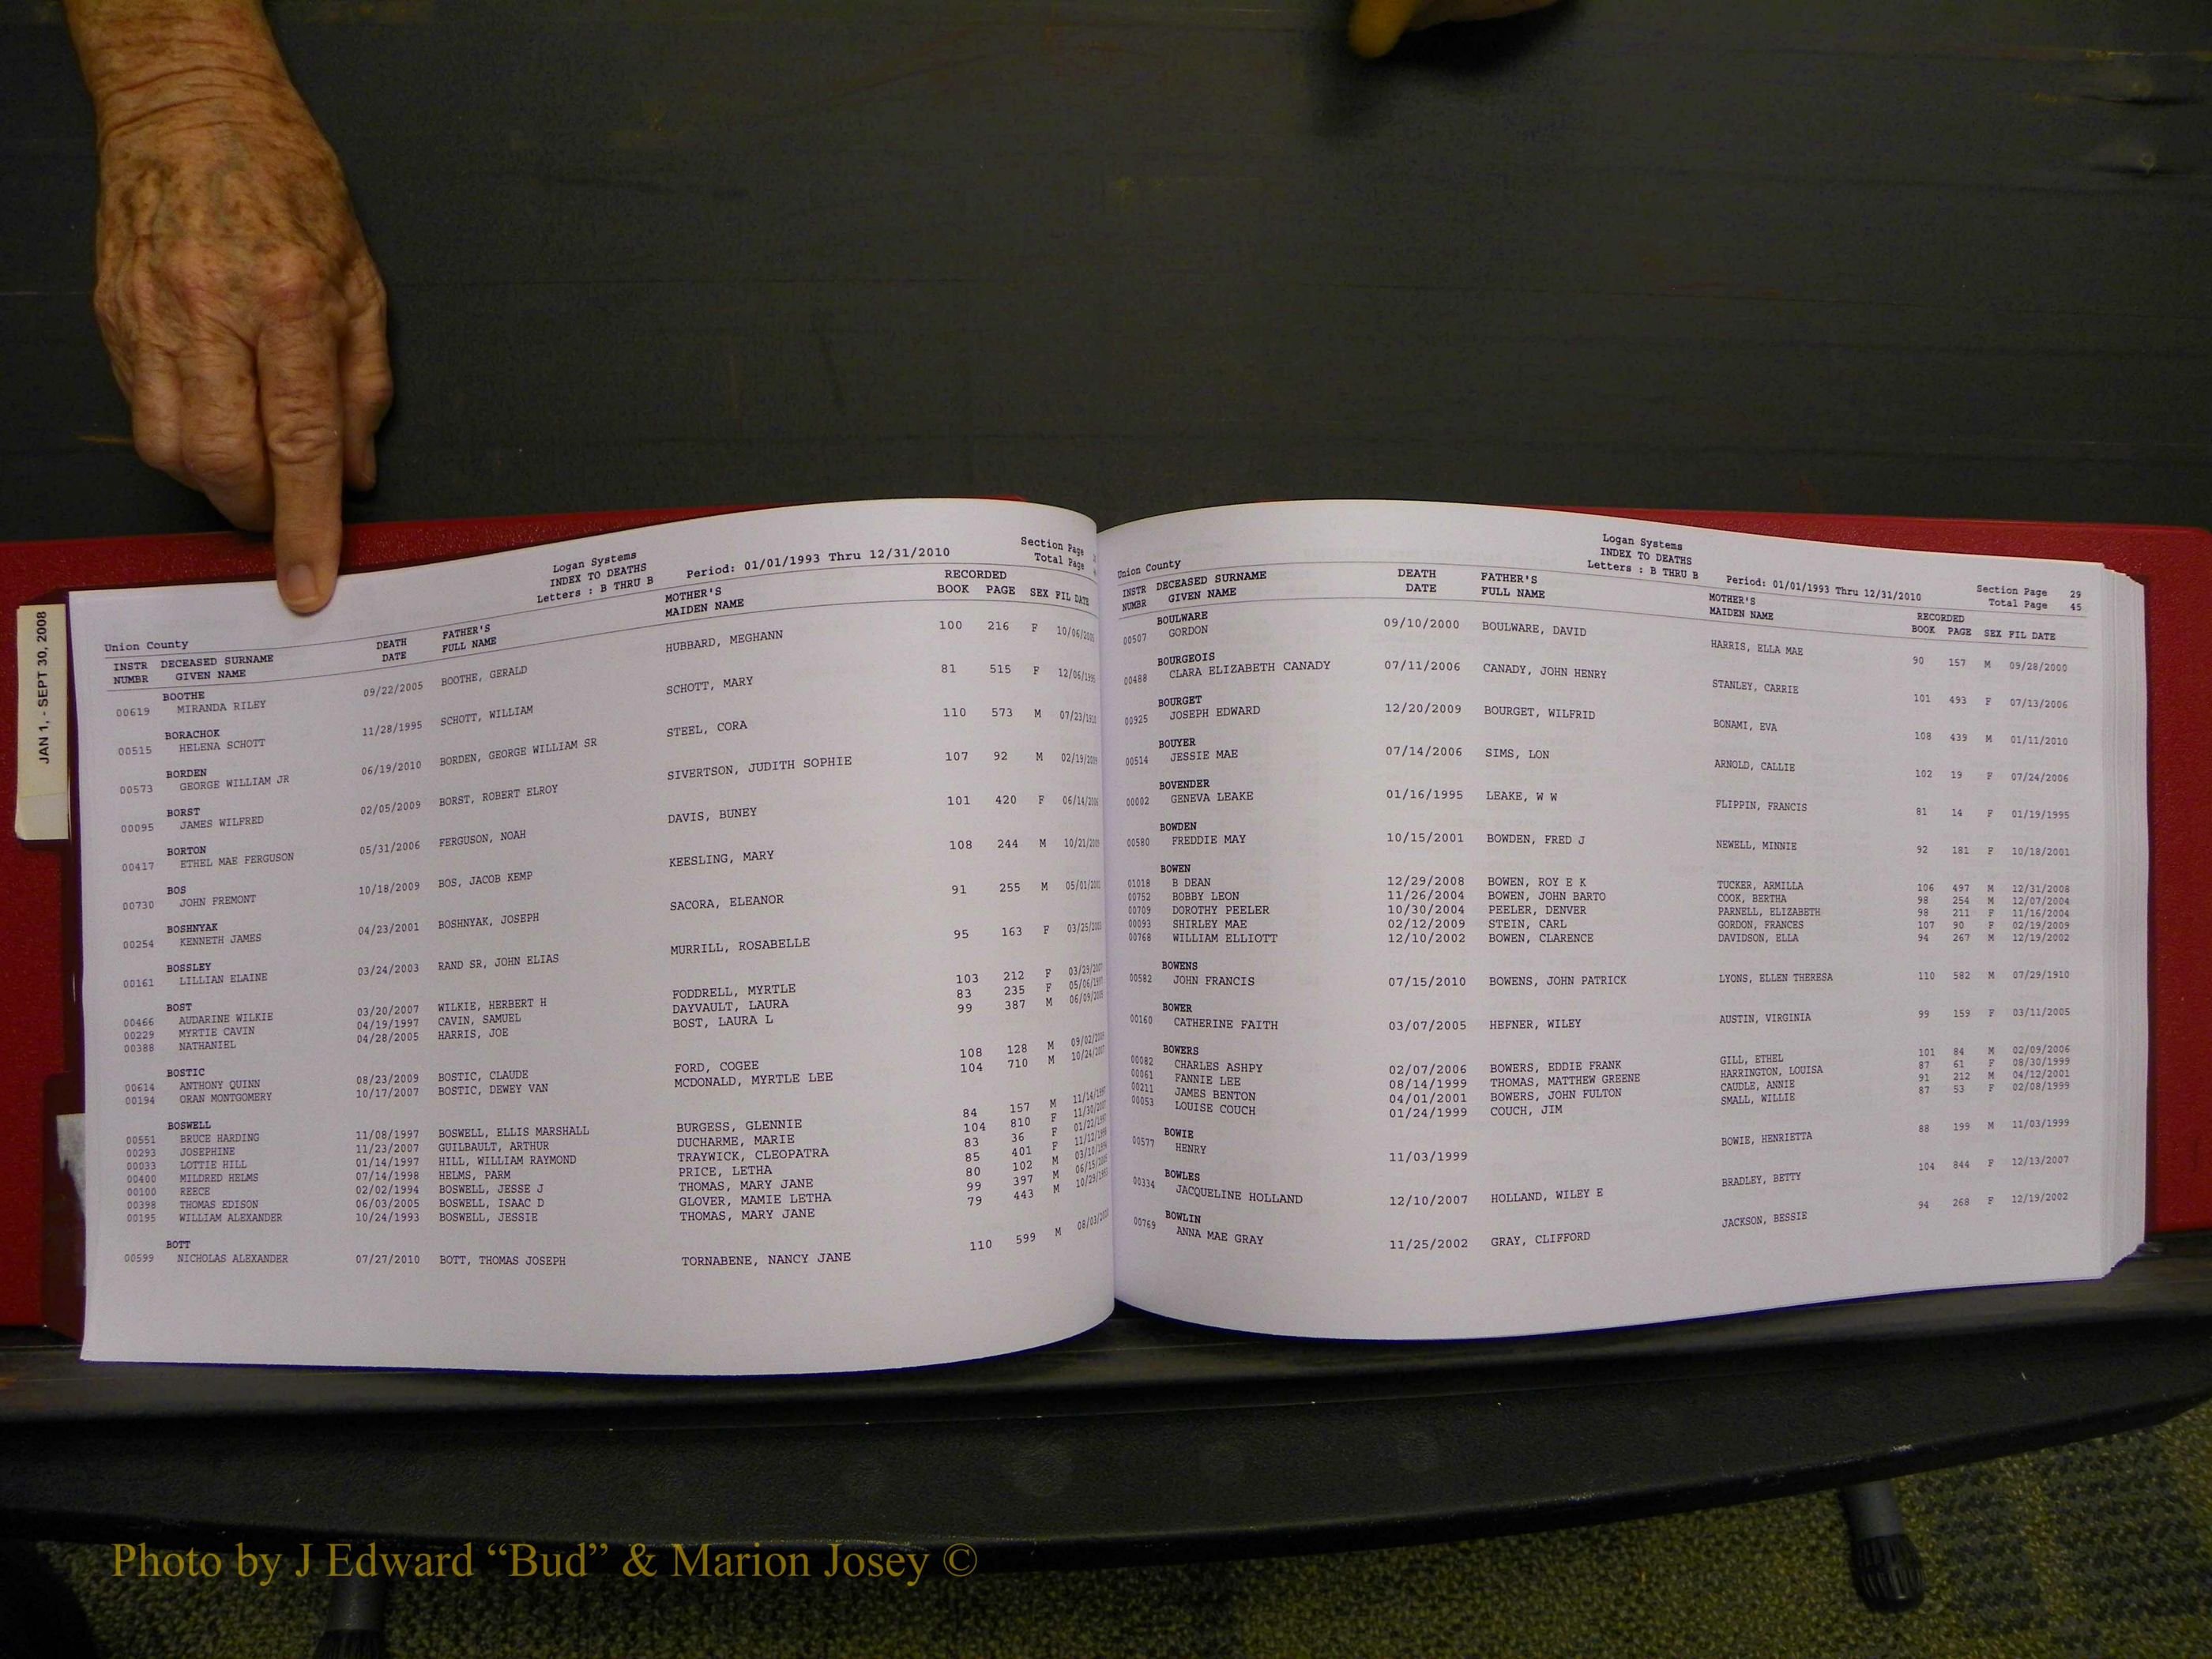 JAN 1, - SEPT 30, 2008
Logan Systems
INDEX TO DEATHS
Letters : B THRU B
Period: 01/01/1993 Thru 12/31/2010
Section Page
Total Page
Union County
INSTR DECEASED SURNAME DEATH FATHER'S MOTHER'S RECORDED
NUMBR GIVEN NAME DATE FULL NAME MAIDEN NAME BOOK PAGE SEX FIL DATE
BOOTHE
00619 MIRANDA RILEY 09/22/2005 BOOTHE, GERALD HUBBARD, MEGHANN 100 216 F 10/06/2005
BORACHOK
00515 HELENA SCHOTT 11/28/1995 SCHOTT, WILLIAM SCHOTT, MARY 81 515 F 12/06/1995
BORDEN
00573 GEORGE WILLIAM JR 06/19/2010 BORDEN, GEORGE WILLIAM SR STEEL, CORA 110 573 M 07/23/1910
BORST
00095 JAMES WILFRED 02/05/2009 BORST, ROBERT ELROY SIVERTSON, JUDITH SOPHIE 107 92 M 02/19/2009
BORTON
00417 ETHEL MAE FERGUSON 05/31/2006 FERGUSON, NOAH DAVIS, BUNEY 101 420 F 06/14/2006
BOS
00730 JOHN FREMONT 10/18/2009 BOS, JACOB KEMP KEESLING, MARY 108 244 M 10/21/2009
BOSHNYAK
00254 KENNETH JAMES 04/23/2001 BOSHNYAK, JOSEPH SACORA, ELEANOR 91 255 M 05/01/2001
BOSSLEY
00161 LILLIAN ELAINE 03/24/2003 RAND SR, JOHN ELIAS MURRILL, ROSABELLE 95 163 F 03/25/2003
BOST
00466 AUDARINE WILKIE 03/20/2007 WILKIE, HERBERT H FODDRELL, MYRTLE 103 212 F 03/29/2007
00229 MYRTIE CAVIN 04/19/1997 CAVIN, SAMUEL DAYVAULT, LAURA 83 235 F 05/06/1997
00388 NATHANIEL 04/28/2005 HARRIS, JOE BOST, LAURA L 99 387 M 06/09/2005
BOSTIC
00614 ANTHONY QUINN 08/23/2009 BOSTIC, CLAUDE FORD, COGEE 108 128 M 09/02/2009
00194 ORAN MONTGOMERY 10/17/2007 BOSTIC, DEWEY VAN MCDONALD, MYRTLE LEE 104 710 M 10/24/2007
BOSWELL
00551 BRUCE HARDING 11/08/1997 BOSWELL, ELLIS MARSHALL BURGESS, GLENNIE 84 157 M 11/14/1997
00293 JOSEPHINE 11/23/2007 GUILBAULT, ARTHUR DUCHARME, MARIE 104 810 F 11/30/2007
00033 LOTTIE HILL 01/14/1997 HILL, WILLIAM RAYMOND TRAYWICK, CLEOPATRA 83 36 F 01/22/1997
00400 MILDRED HELMS 07/14/1998 HELMS, PARM PRICE, LETHA 85 401 F 11/12/1998
00100 REECE 02/02/1994 BOSWELL, JESSE J THOMAS, MARY JANE 80 102 M 03/10/1994
00398 THOMAS EDISON 06/03/2005 BOSWELL, ISAAC D GLOVER, MAMIE LETHA 99 397 M 06/15/2005
00195 WILLIAM ALEXANDER 10/24/1993 BOSWELL, JESSIE THOMAS, MARY JANE 79 443 M 10/29/1993
BOTT
00599 NICHOLAS ALEXANDER 07/27/2010 BOTT, THOMAS JOSEPH TORNABENE, NANCY JANE 110 599 M
Logan Systems
INDEX TO DEATHS
Letters : B THRU B
Period: 01/01/1993 Thru 12/31/2010
Section Page 29
Total Page 45
Union County
INSTR DECEASED SURNAME DEATH FATHER'S MOTHER'S RECORDED
NUMBR GIVEN NAME DATE FULL NAME MAIDEN NAME BOOK PAGE SEX FIL DATE
BOULWARE
00507 GORDON 09/10/2000 BOULWARE, DAVID HARRIS, ELLA MAE 90 157 M 09/28/2000
BOURGEOIS
00488 CLARA ELIZABETH CANADY 07/11/2006 CANADY, JOHN HENRY STANLEY, CARRIE 101 493 F 07/13/2006
BOURGET
00925 JOSEPH EDWARD 12/20/2009 BOURGET, WILFRID BONAMI, EVA 108 439 M 01/11/2010
BOUYER
00514 JESSIE MAE 07/14/2006 SIMS, LON ARNOLD, CALLIE 102 19 F 07/24/2006
BOVENDER
00002 GENEVA LEAKE 01/16/1995 LEAKE, W W FLIPPIN, FRANCIS 81 14 F 01/19/1995
BOWDEN
00580 FREDDIE MAY 10/15/2001 BOWDEN, FRED J NEWELL, MINNIE 92 181 F 10/18/2001
BOWEN
01018 B DEAN 12/29/2008 BOWEN, ROY E K TUCKER, ARMILLA 106 497 M 12/31/2008
00752 BOBBY LEON 11/26/2004 BOWEN, JOHN BARTO COOK, BERTHA 98 254 M 12/07/2004
00709 DOROTHY PEELER 10/30/2004 PEELER, DENVER PARNELL, ELIZABETH 98 211 F 11/16/2004
00093 SHIRLEY MAE 02/12/2009 STEIN, CARL GORDON, FRANCES 107 90 F 02/19/2009
00768 WILLIAM ELLIOTT 12/10/2002 BOWEN, CLARENCE DAVIDSON, ELLA 94 267 M 12/19/2002
BOWENS
00582 JOHN FRANCIS 07/15/2010 BOWENS, JOHN PATRICK LYONS, ELLEN THERESA 110 582 M 07/29/1910
BOWER
00160 CATHERINE FAITH 03/07/2005 HEFNER, WILEY AUSTIN, VIRGINIA 99 159 F 03/11/2005
BOWERS
00082 CHARLES ASHPY 02/07/2006 BOWERS, EDDIE FRANK GILL, ETHEL 101 84 M 02/09/2006
00061 FANNIE LEE 08/14/1999 THOMAS, MATTHEW GREENE HARRINGTON, LOUISA 87 61 F 08/30/1999
00211 JAMES BENTON 04/01/2001 BOWERS, JOHN FULTON CAUDLE, ANNIE 91 212 M 04/12/2001
00053 LOUISE COUCH 01/24/1999 COUCH, JIM SMALL, WILLIE 87 53 F 02/08/1999
BOWIE
00577 HENRY 11/03/1999 BOWIE, HENRIETTA 88 199 M 11/03/1999
BOWLES
00334 JACQUELINE HOLLAND 12/10/2007 HOLLAND, WILEY E BRADLEY, BETTY 104 844 F 12/13/2007
BOWLIN
00769 ANNA MAE GRAY 11/25/2002 GRAY, CLIFFORD JACKSON, BESSIE 94 268 F 12/19/2002
Photo by J Edward “Bud” & Marion Josey ©